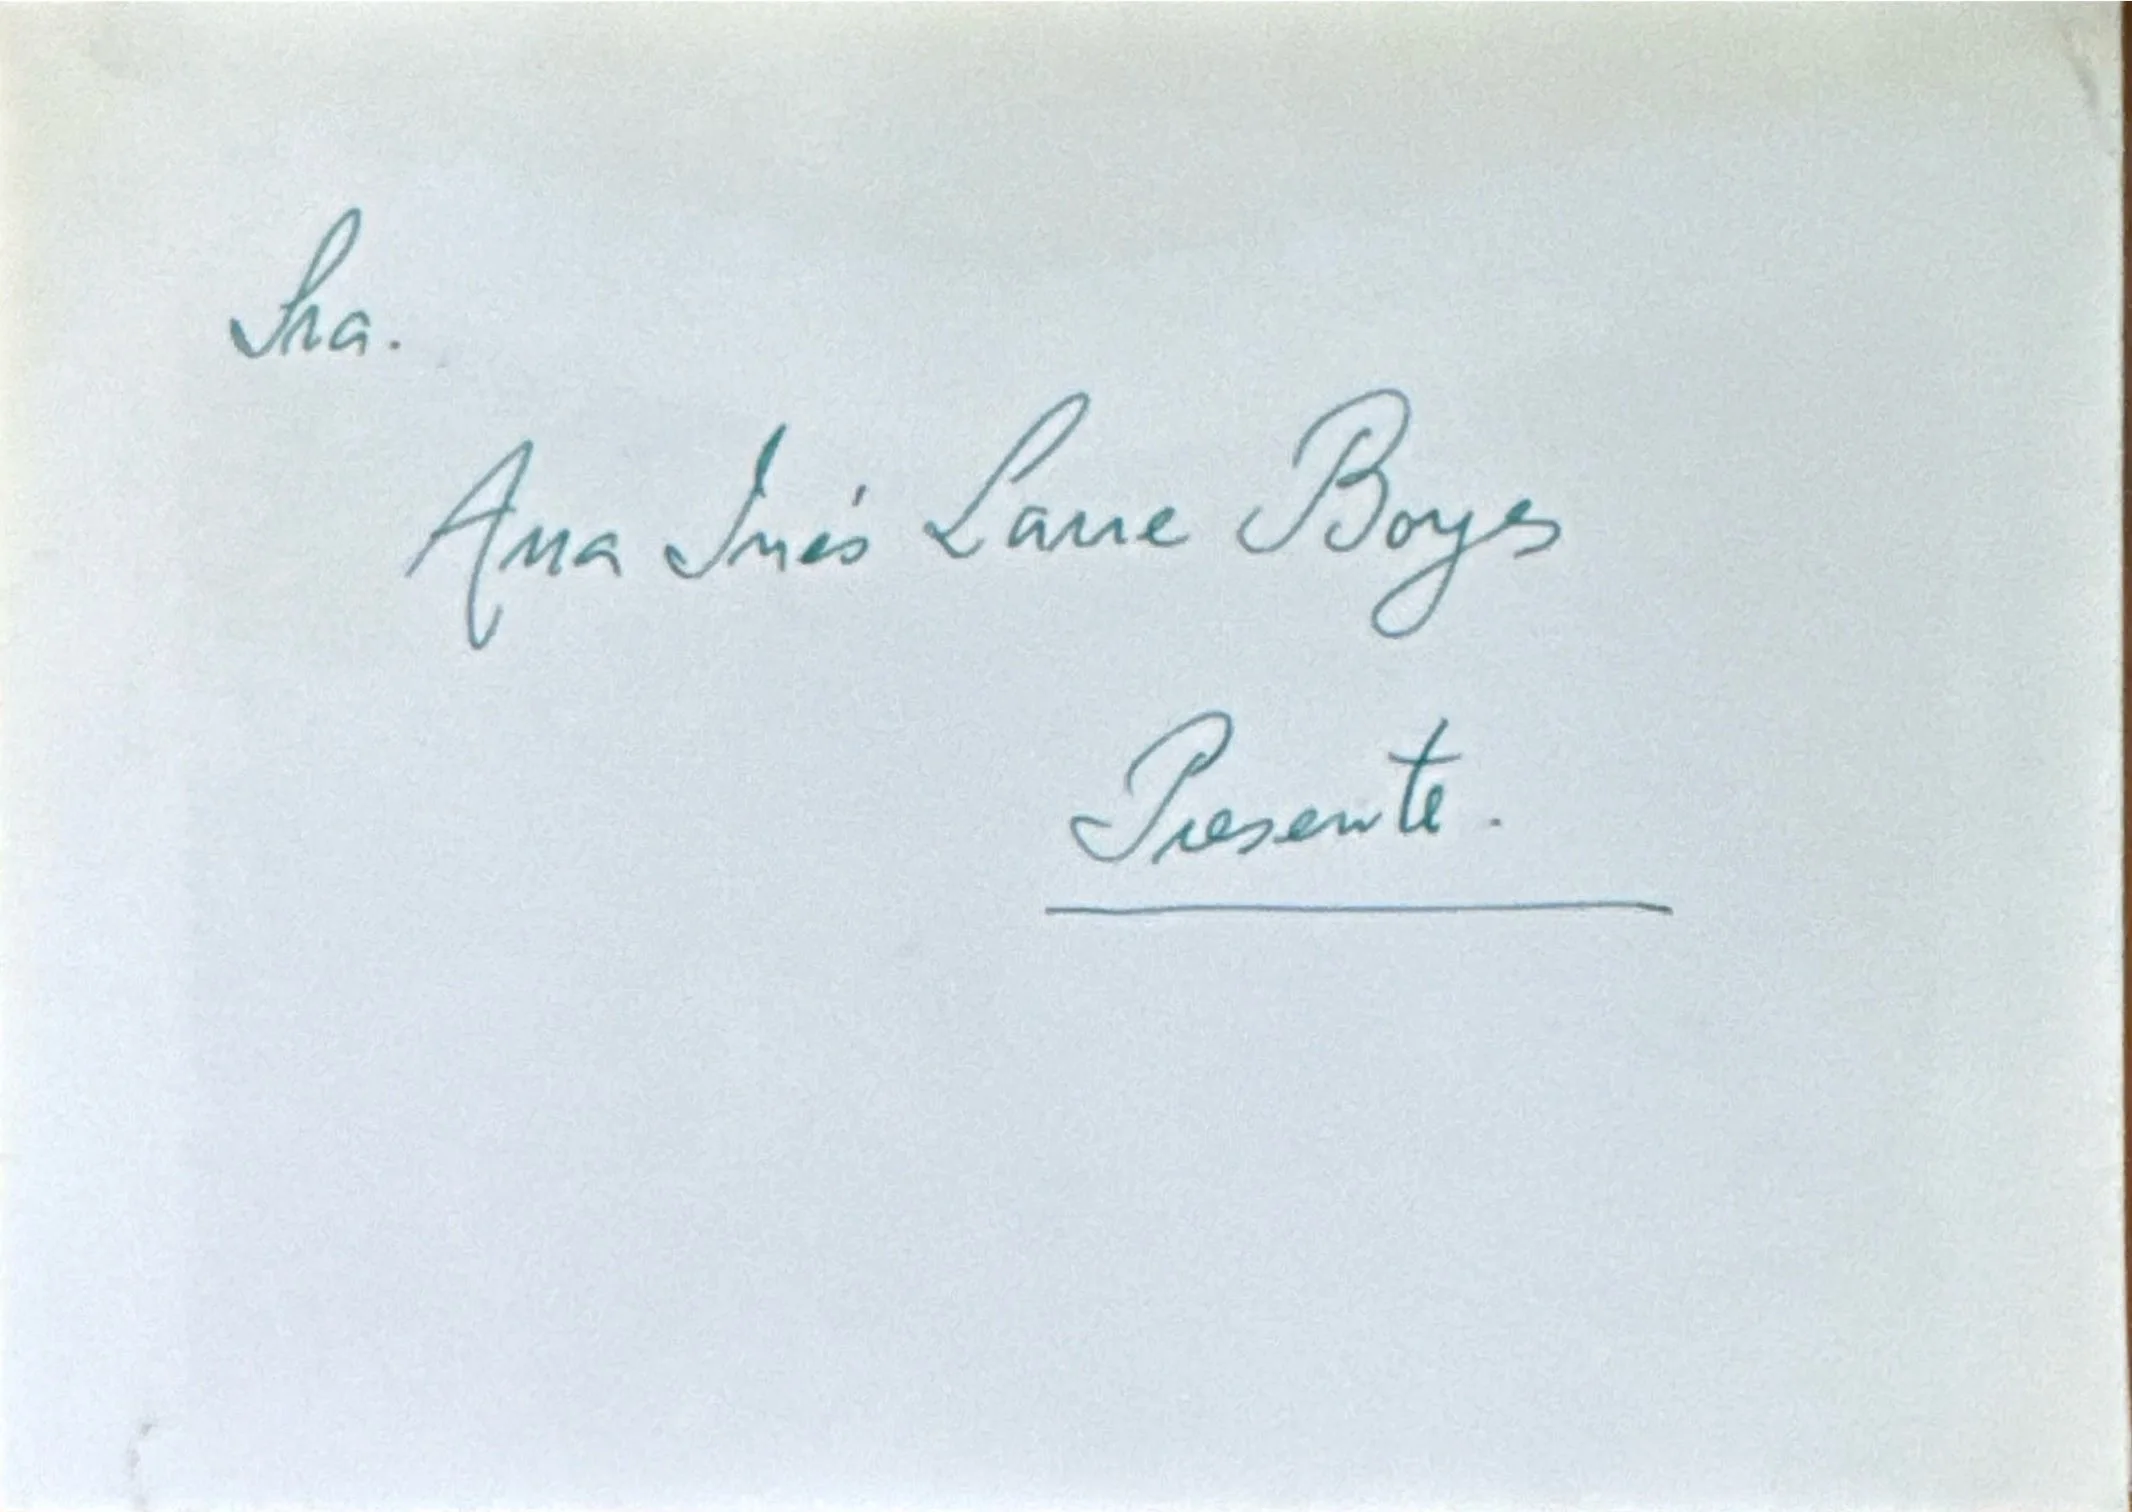 Sra.
Ana Inés Larre Borges
Presente.